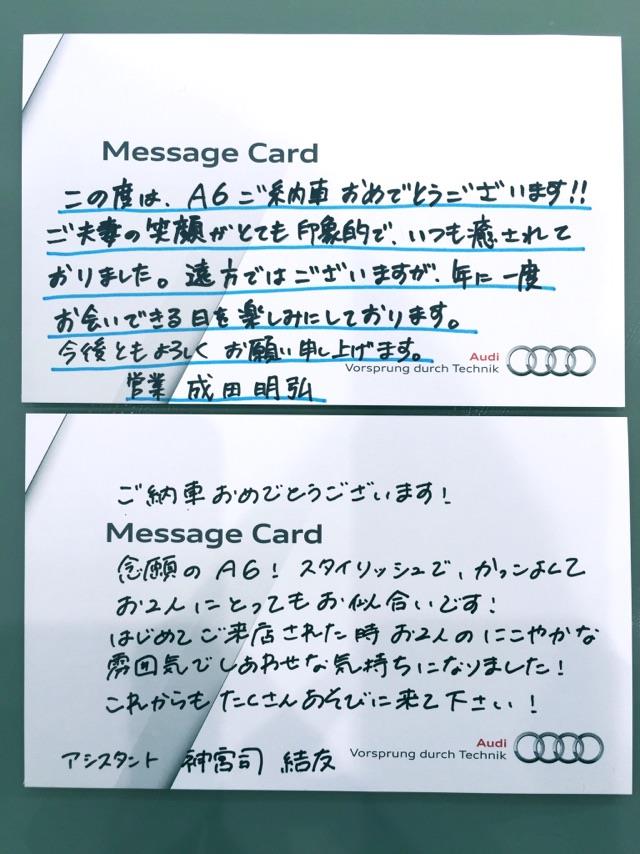 Message Card
この度は、A6ご納車おめでとうございます!!
ご夫妻の笑顔がとても印象的で、いつも癒されて
おりました。遠方ではございますが、年に一度
お会いできる日を楽しみにしております。
今後ともよろしくお願い申し上げます。
営業 成田明弘
Audi
Vorsprung durch Technik
ご納車おめでとうございます!
Message Card
念願のA6! スタイリッシュで、かっこよくて
お2人にとってもお似合いです!
はじめてご来店された時お2人のにこやかな
雰囲気でしあわせな気持ちになりました!
これからもたくさんあそびに来て下さい!
アシスタント 神宮司 結友
Audi
Vorsprung durch Technik